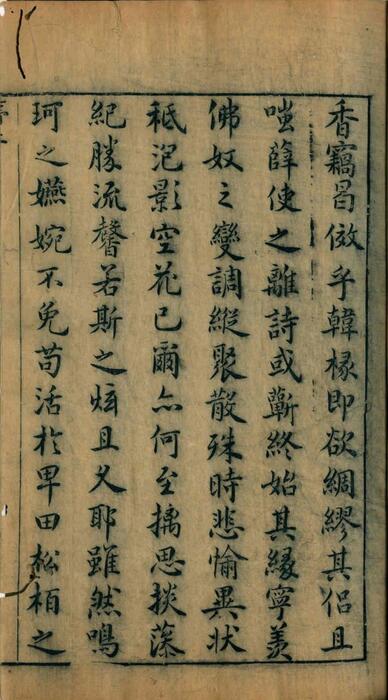 香竊曷倣乎韓椽即欲綢繆其侶且
嗤薛使之離詩或蘄終始其緣寧羨
佛奴之變調縱聚散殊時悲愉異狀
秪泡影空花已爾亦何至摛思掞藻
紀勝流馨若斯之炫且久耶雖然鳴
珂之嬿婉不免苟活於卑田松柏之